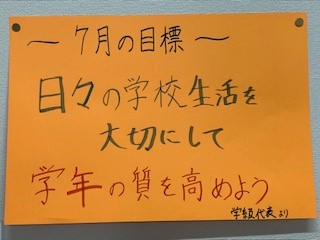 ～7月の目標～
日々の学校生活を
大切にして
学年の質を高めよう
学級代表より